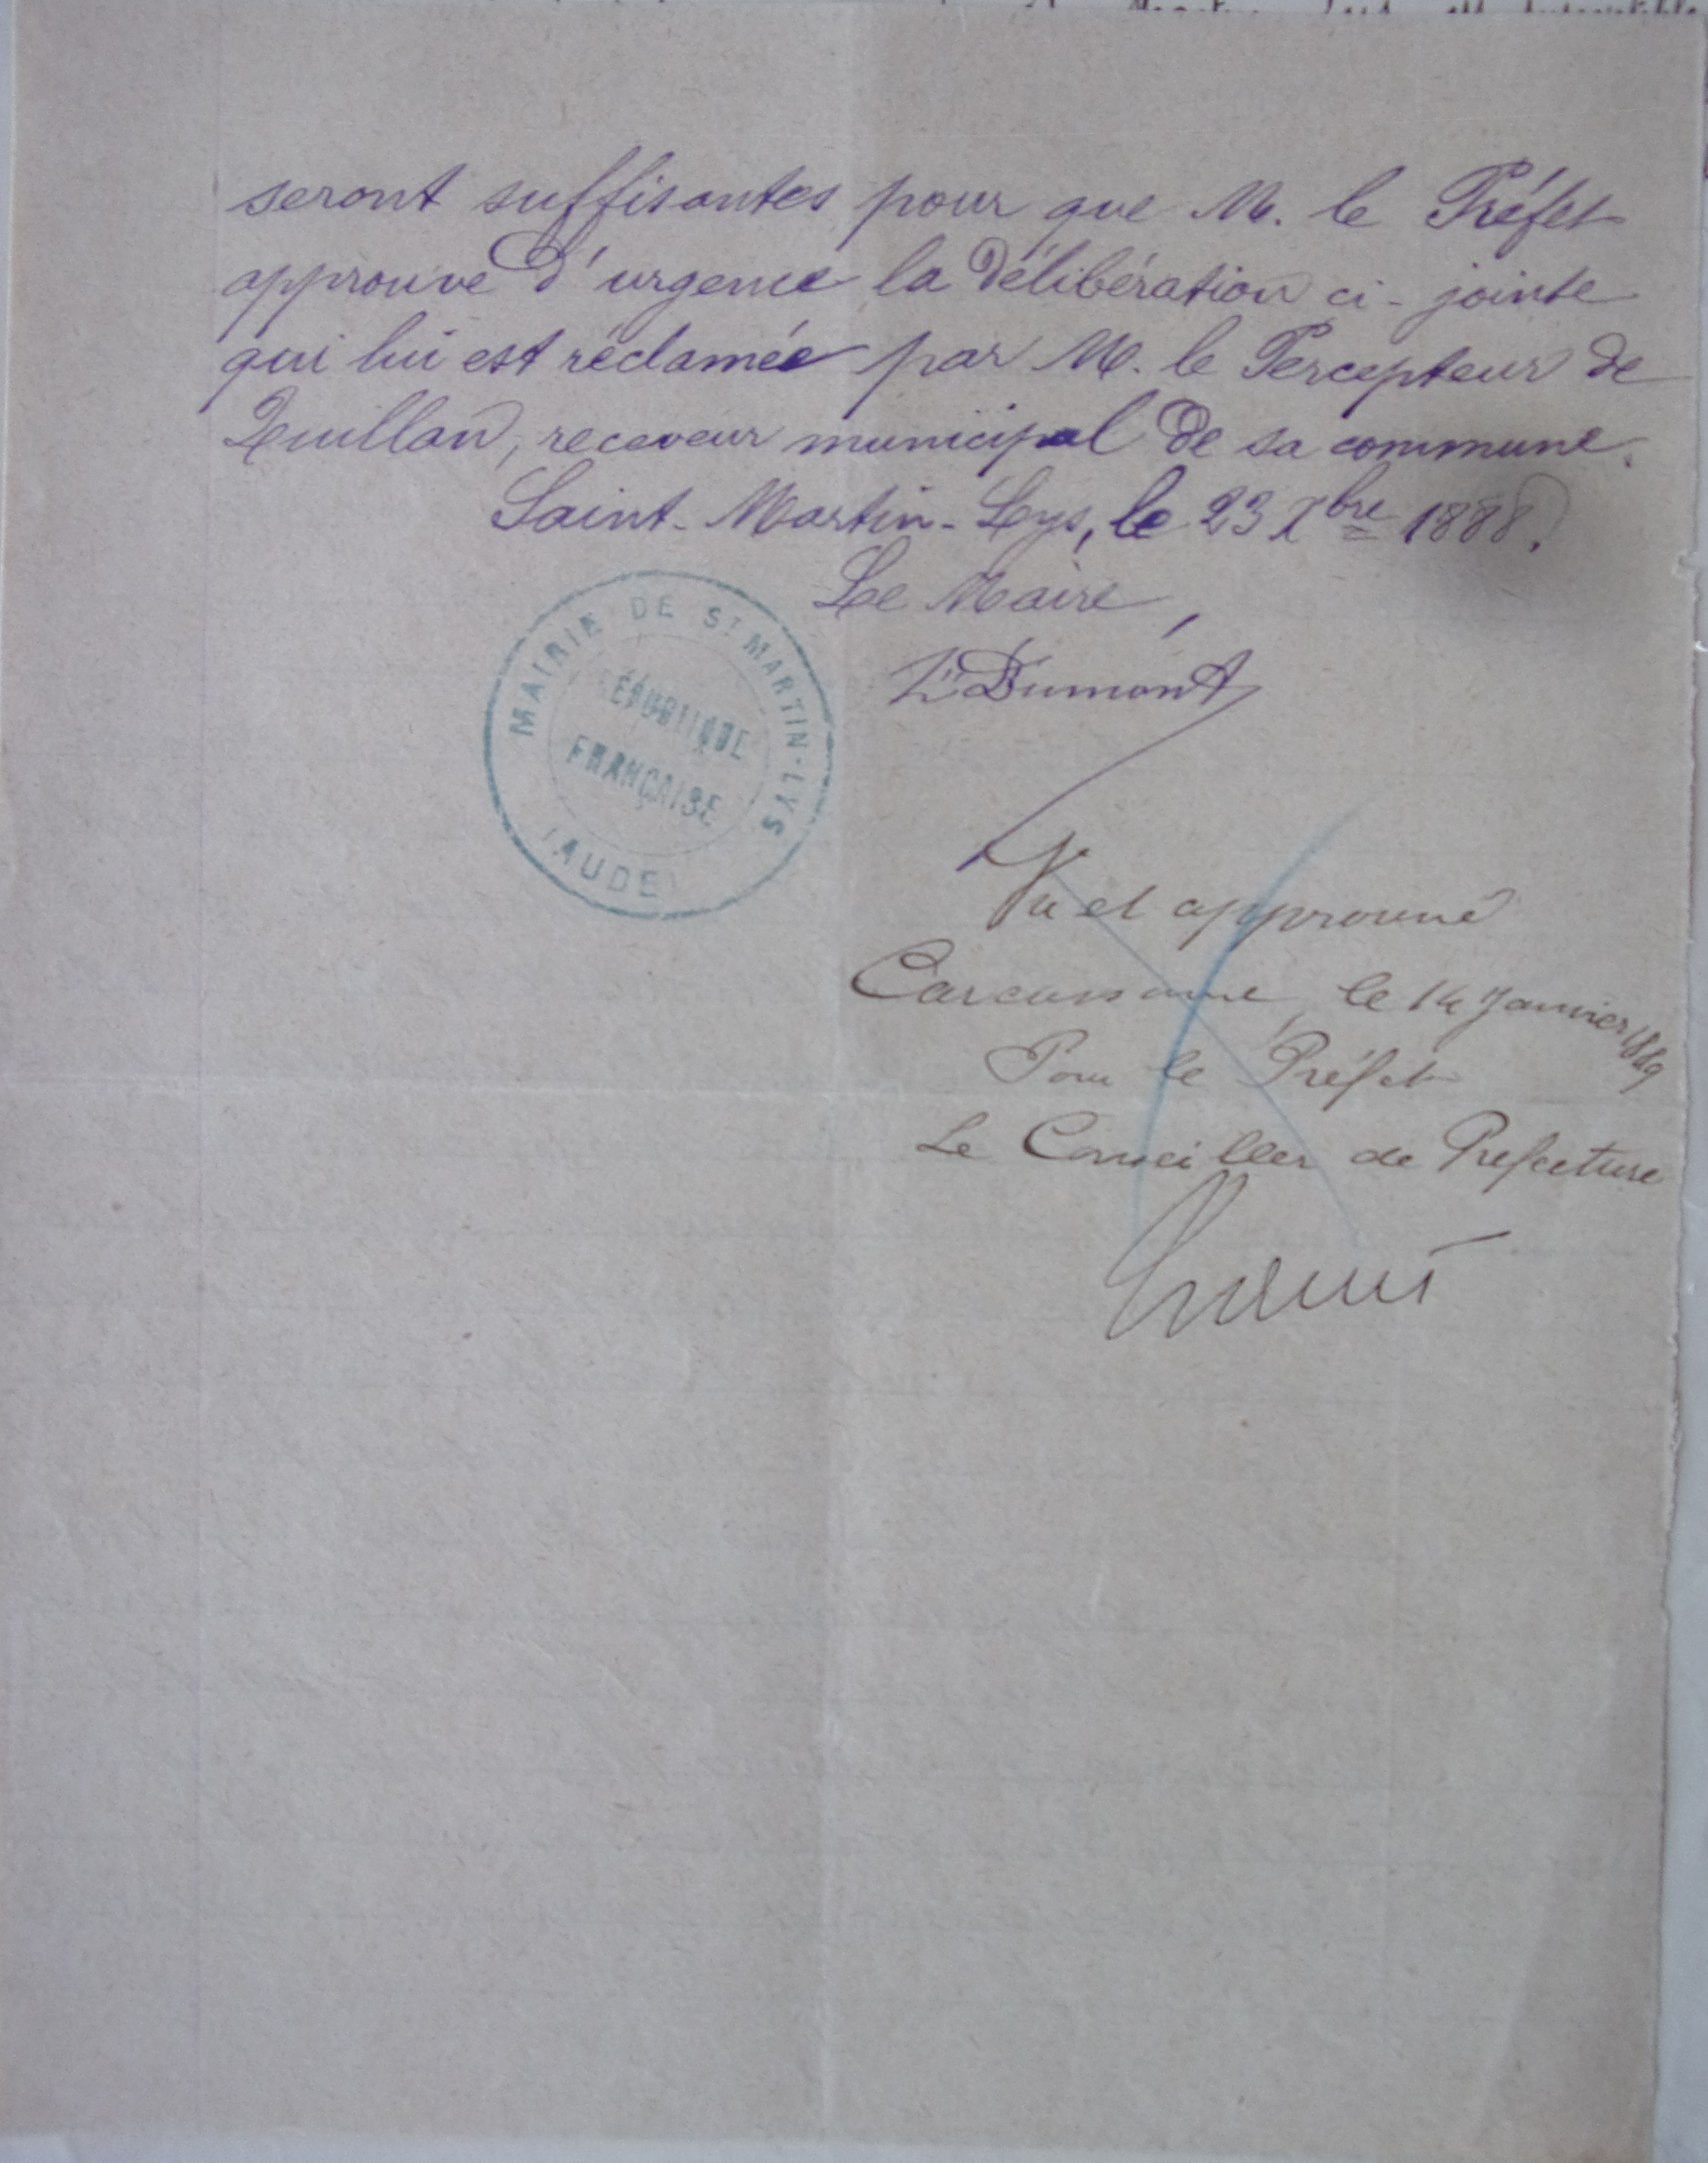 seront suffisantes pour que M. le Préfet
approuve d'urgence la délibération ci-jointe
qui lui est réclamée par M. le Percepteur de
Quillan, receveur municipal de sa commune.
Saint-Martin-Lys, le 23 Xbre 1888.
Le Maire,
Dumont
MAIRIE DE ST MARTIN-LYS
RÉPUBLIQUE
FRANÇAISE
(AUDE)
Vu et approuvé
Carcassonne, le 14 Janvier 1889
Pour le Préfet
Le Conseiller de Préfecture